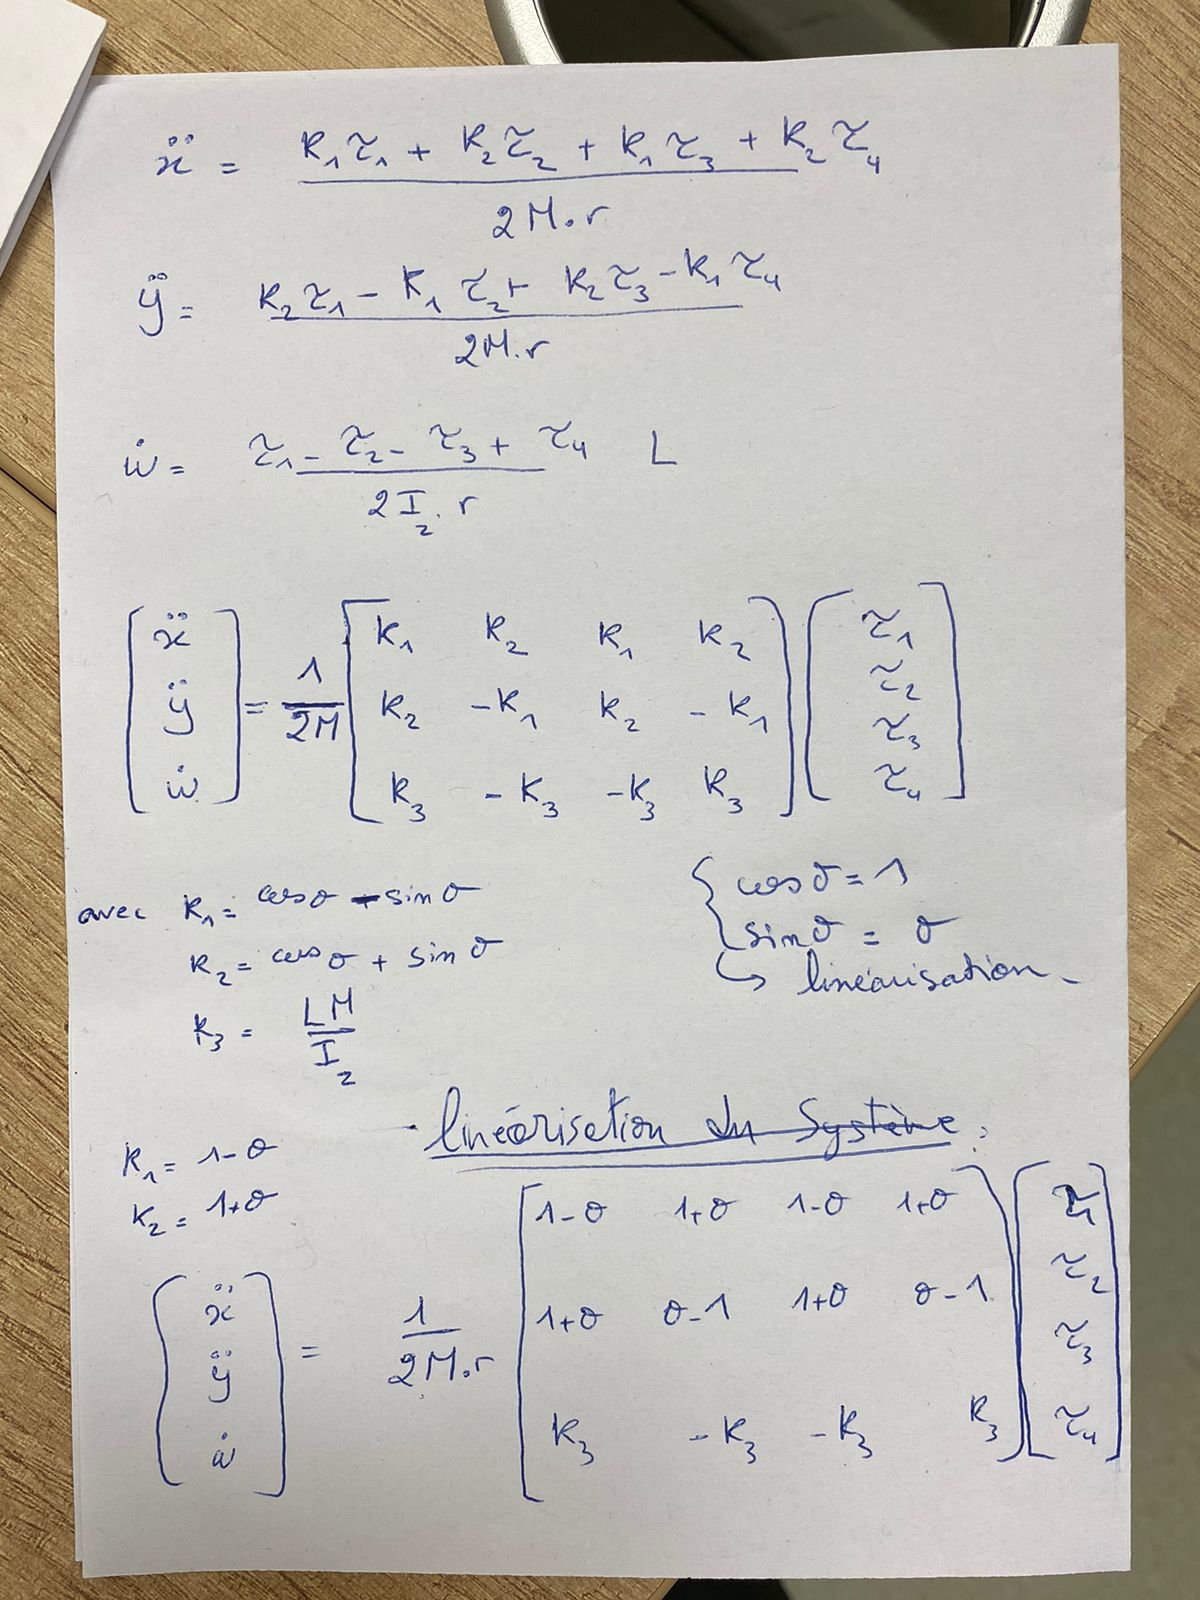 ẍ = (k₁τ₁ + k₂τ₂ + k₁τ₃ + k₂τ₄) / 2M.r
ÿ = (k₂τ₁ - k₁τ₂ + k₂τ₃ - k₁τ₄) / 2M.r
ẇ = (τ₁ - τ₂ - τ₃ + τ₄) / 2I₂.r L
[ẍ ÿ ẇ] = 1/2M [k₁ k₂ k₁ k₂
k₂ -k₁ k₂ -k₁
k₃ -k₃ -k₃ k₃] [τ₁ τ₂ τ₃ τ₄]
avec k₁ = cosθ - sinθ
k₂ = cosθ + sinθ
k₃ = LM / I₂
{ cosθ = 1
sinθ = θ
↳ linéarisation.
. linéarisation du Système :
k₁ = 1-θ
k₂ = 1+θ
[ẍ ÿ ẇ] = 1/2M.r [1-θ 1+θ 1-θ 1+θ
1+θ θ-1 1+θ θ-1
k₃ -k₃ -k₃ k₃] [τ₁ τ₂ τ₃ τ₄]